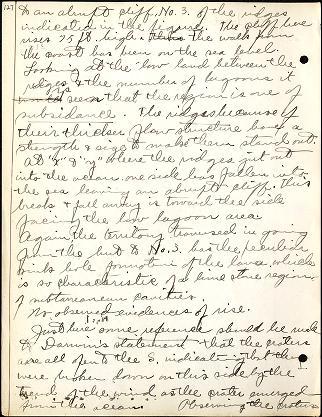 127
to an abrupt cliff, No. 3. of the ridges
indicated in the figure. The cliff here
rises 75 ft. high. the walk from
the coast has been on the sea label
Looking at the low land between the
ridges & the number of lagoons it
seems that the region is one of
subsidance. The ridges because of
their thicker flow structure have a
strength & size to make them stand out.
At "x" & "y" where the ridges jut out
into the ocean one side has fallen into
the sea leaving an abrupt cliff. This
break & fall away is toward the side
facing the low lagoon area
Again the territory traversed in going
from the hut to No. 3. has the peculiar
sink hole formation of the lava, which
is so characteristic of a lime stone region
of subterranean cavities.
No observed evidences of rise.
Just here some reference should be made
to Darwin's statement that the craters
are all open to the S, indicating that they
were broken down on this side by the
trends of the wind, as the crater emerged
from the ocean. Observing the craters